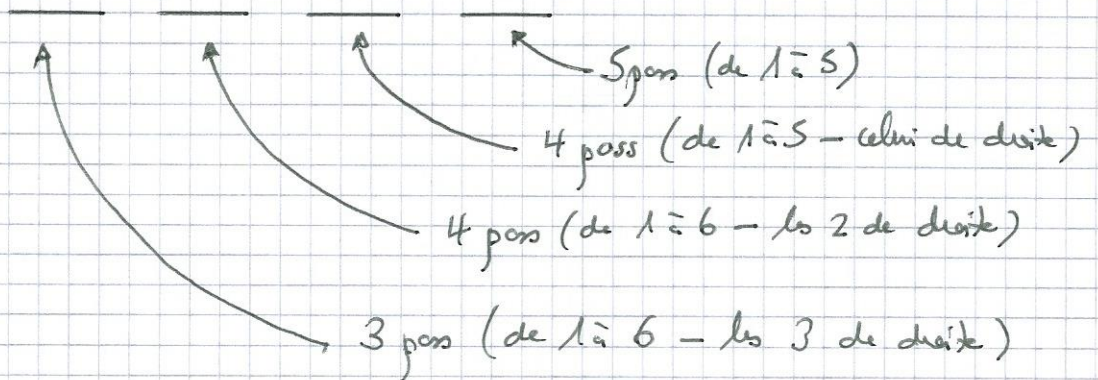 5 poss (de 1 à 5)
4 poss (de 1 à 5 - celui de droite)
4 poss (de 1 à 6 - les 2 de droite)
3 poss (de 1 à 6 - les 3 de droite)